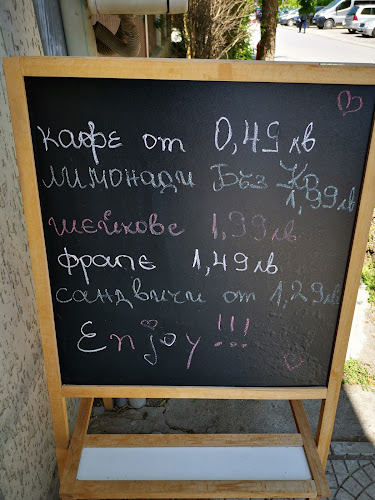 кафе от 0,49 лв
лимонади Бъз Кр
1,99лв
шейкове 1,99лв
фрапе 1,49лв
сандвичи от 1,29лв
Enjoy!!!